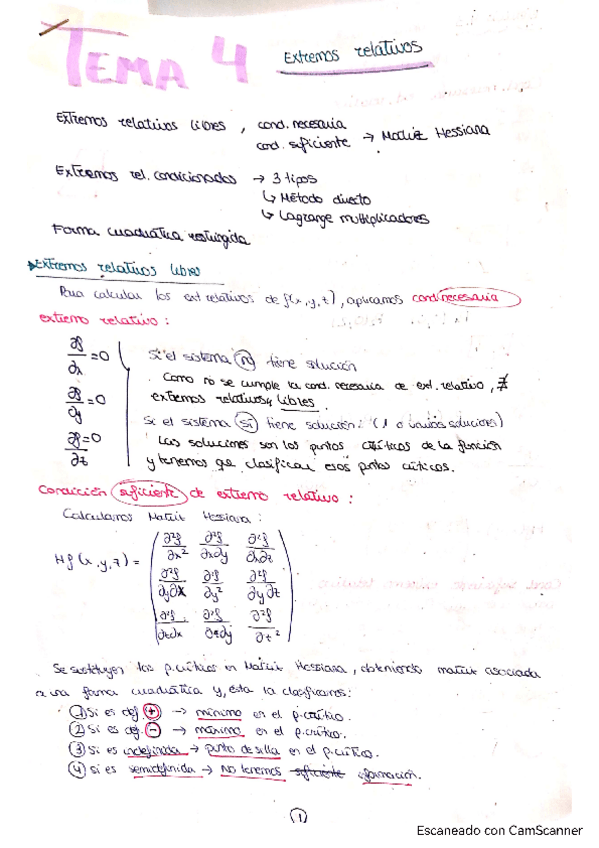 TEMA 4 Extremos relativos
Extremos relativos libres, cond. necesaria
cond. suficiente → Matriz Hessiana
Extremos rel. condicionados → 3 tipos
↳ Método directo
↳ Lagrange multiplicadores
Forma cuadrática restringida
Extremos relativos libres
Para calcular los ext relativos de f(x,y,z), aplicamos cond necesaria
extremo relativo:
∂f/∂x = 0
∂f/∂y = 0
∂f/∂z = 0
Si el sistema no tiene solución
Como no se cumple la cond. necesaria de ext. relativo, ∄
extremos relativos libres.
Si el sistema sí tiene solución: (1 o varias soluciones)
Las soluciones son los puntos críticos de la función
y tenemos que clasificar esos puntos críticos.
Condición suficiente de extremo relativo:
Calculamos Matriz Hessiana:
Hf(x,y,z) =
∂²f/∂x² ∂²f/∂x∂y ∂²f/∂x∂z
∂²f/∂y∂x ∂²f/∂y² ∂²f/∂y∂z
∂²f/∂z∂x ∂²f/∂z∂y ∂²f/∂z²
Se sustituyen los p.críticos en Matriz Hessiana, obteniendo matriz asociada
a una forma cuadrática y, esta la clasificamos:
① Si es def. + → mínimo en el p.crítico.
② Si es def. - → máximo en el p.crítico.
③ Si es indefinida → punto de silla en el p.crítico.
④ Si es semidefinida → No tenemos suficiente información.
1
Escaneado con CamScanner